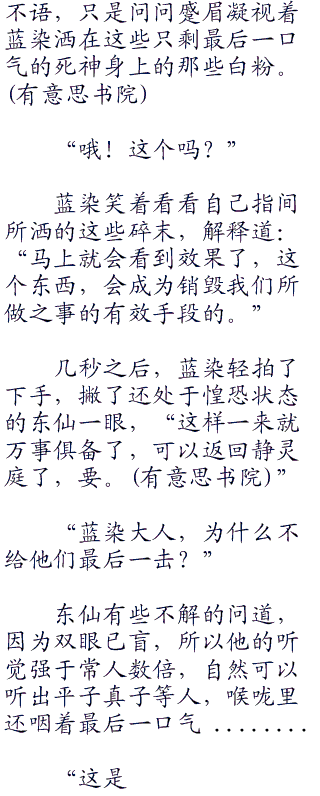 不语，只是问问蹙眉凝视着
蓝染洒在这些只剩最后一口
气的死神身上的那些白粉。
(有意思书院)
“哦！这个吗？”
蓝染笑着看看自己指间
所洒的这些碎末，解释道：
“马上就会看到效果了，这
个东西，会成为销毁我们所
做之事的有效手段的。”
几秒之后，蓝染轻拍了
下手，撇了还处于惶恐状态
的东仙一眼，“这样一来就
万事俱备了，可以返回静灵
庭了，要。(有意思书院)”
“蓝染大人，为什么不
给他们最后一击？”
东仙有些不解的问道，
因为双眼已盲，所以他的听
觉强于常人数倍，自然可以
听出平子真子等人，喉咙里
还咽着最后一口气 ........
“这是